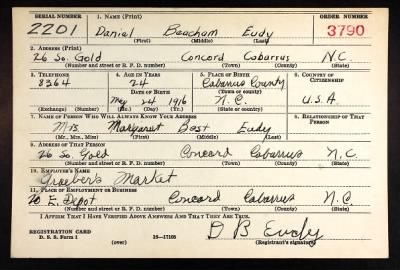 SERIAL NUMBER 1. NAME (Print) ORDER NUMBER
2201 Daniel Beacham Eudy 3790
(First) (Middle) (Last)
2. ADDRESS (Print)
26 So. Gold Concord Cabarrus N.C.
(Number and street or R. F. D. number) (Town) (County) (State)
3. TELEPHONE 4. AGE IN YEARS 5. PLACE OF BIRTH 6. COUNTRY OF CITIZENSHIP
8364 24 Cabarrus County
DATE OF BIRTH (Town or county)
May 24 1916 N.C. U.S.A.
(Exchange) (Number) (Mo.) (Day) (Yr.) (State or country)
7. NAME OF PERSON WHO WILL ALWAYS KNOW YOUR ADDRESS 8. RELATIONSHIP OF THAT PERSON
Mrs. Margaret Bost Eudy
(Mr., Mrs., Miss) (First) (Middle) (Last)
9. ADDRESS OF THAT PERSON
26 So. Gold Concord Cabarrus N.C.
(Number and street or R. F. D. number) (Town) (County) (State)
10. EMPLOYER'S NAME
Graeber's Market
11. PLACE OF EMPLOYMENT OR BUSINESS
20 E. Depot Concord Cabarrus N.C.
(Number and street or R. F. D. number) (Town) (County) (State)
I AFFIRM THAT I HAVE VERIFIED ABOVE ANSWERS AND THAT THEY ARE TRUE.
REGISTRATION CARD
D. S. S. Form 1 (over) 16—17105 D B Eudy
(Registrant's signature)